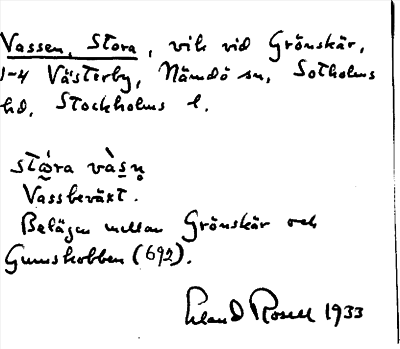 Vassen, Stora, vik vid Grönskär,
1-4 Västerby, Nämdö sn, Sotholms
hd, Stockholms l.
stώ̰ra vàsn̥
Vassbeväxt.
Belägen mellan Grönskär och
Gumskobben (692).
Erland Rosell 1933